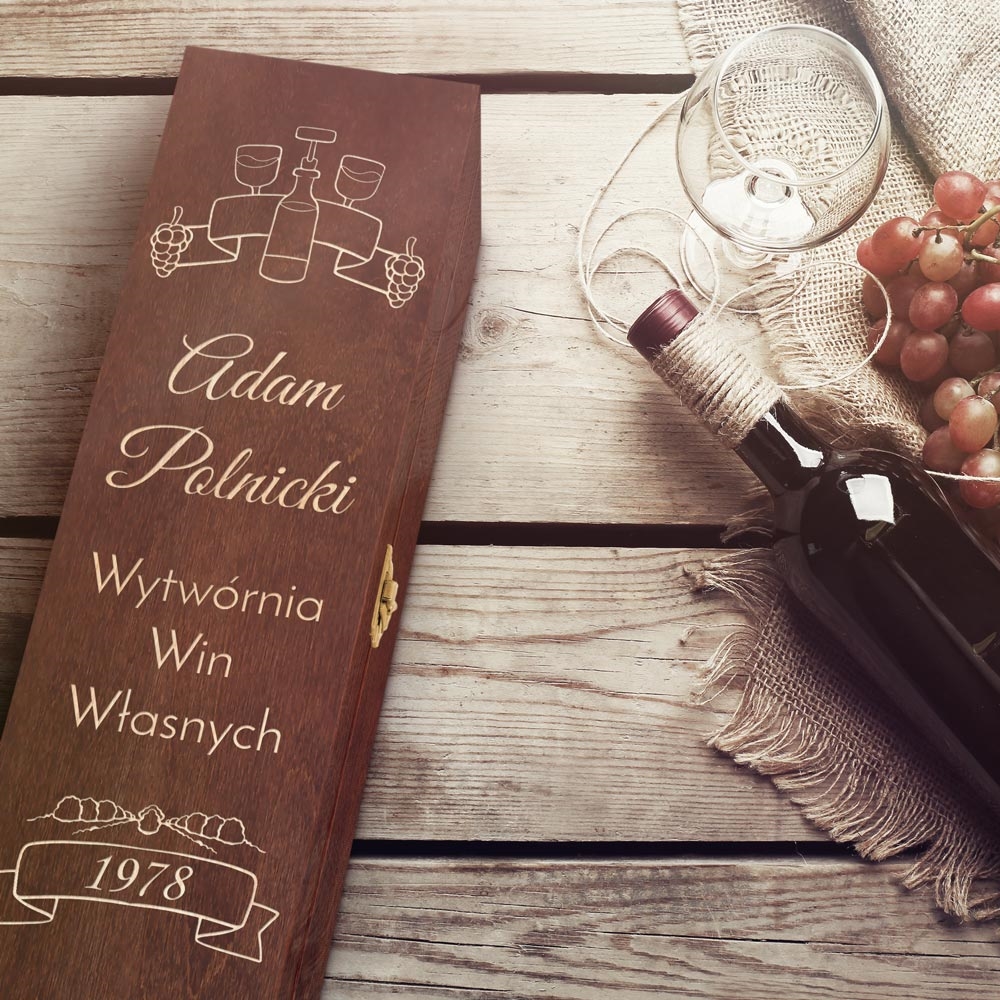 Adam
Polnicki
Wytwórnia
Win
Własnych
1978